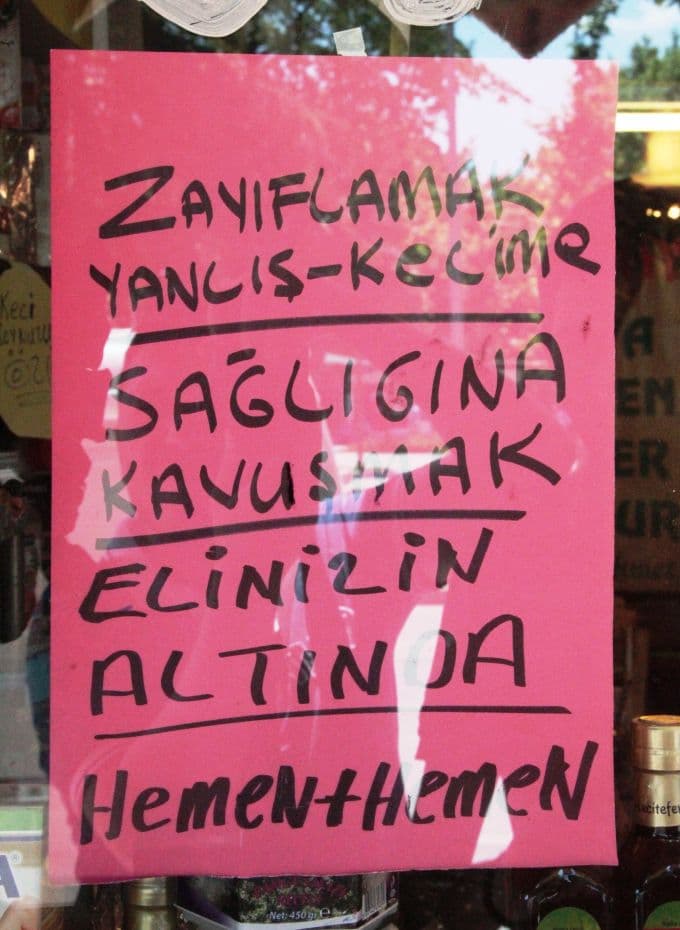 ZAYIFLAMAK
YANLIŞ-KELİME
SAĞLIGINA
KAVUSMAK
ELİNİZİN
ALTINDA
HEMEN+HEMEN
Keci
Net: 450 gr e
A
EN
ER
UR